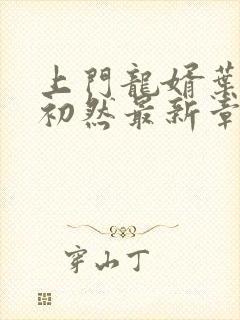 上門龍婿葉
初然最新章
穿山丁